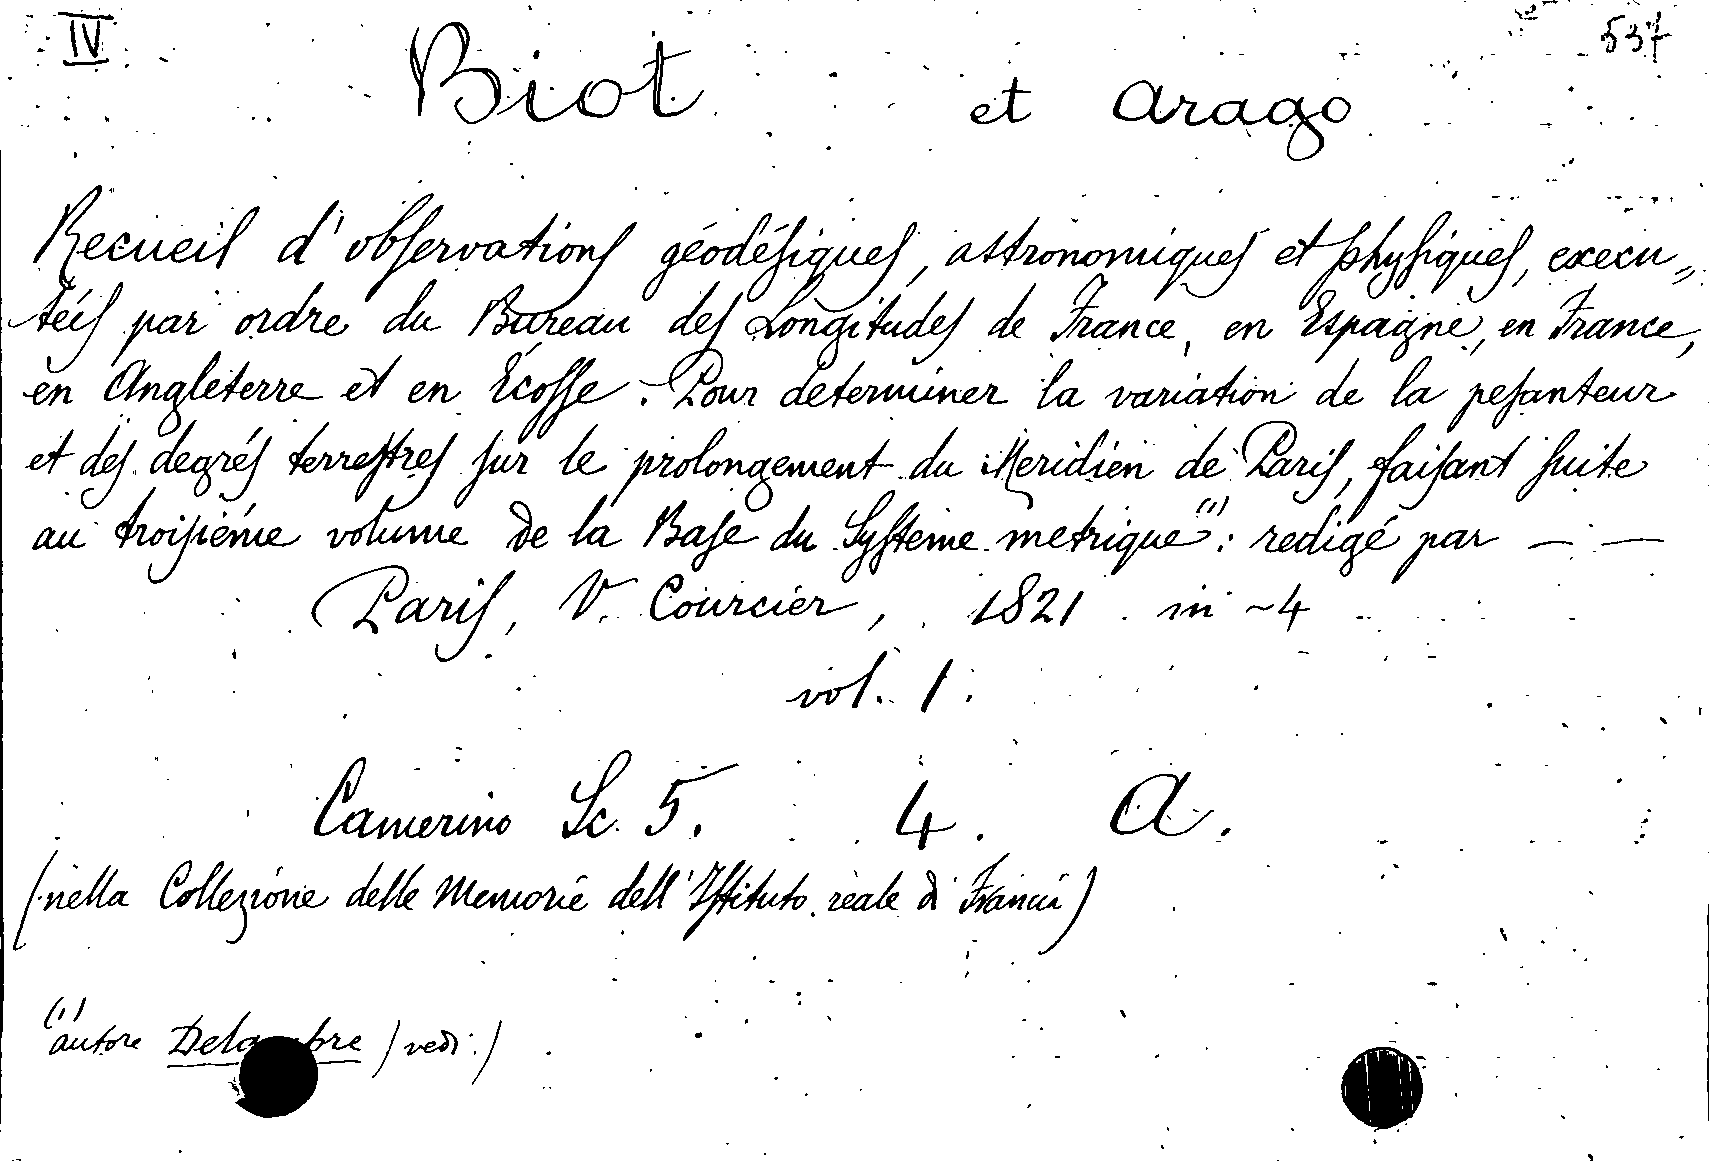 IV
537
Biot et Arago
Recueil d'observations géodésiques, astronomiques et physiques, execu„
téis par ordre du Bureau des Longitudes de France, en Espagne, en France,
en Angleterre et en Écosse. Pour determiner la variation de la pesanteur
et des degrés terrestres sur le prolongement du Meridien de Paris, faisant suite
au troisiéme volume de la Base du Systéme metrique" (1): redigé par — —
Paris, V. Courcier, 1821 in-4
vol. 1.
Camerino Sc. 5. 4. A.
(nella Collezione delle Memorie dell'Istituto reale di Francia)
(1) autore Delambre (vedi:)